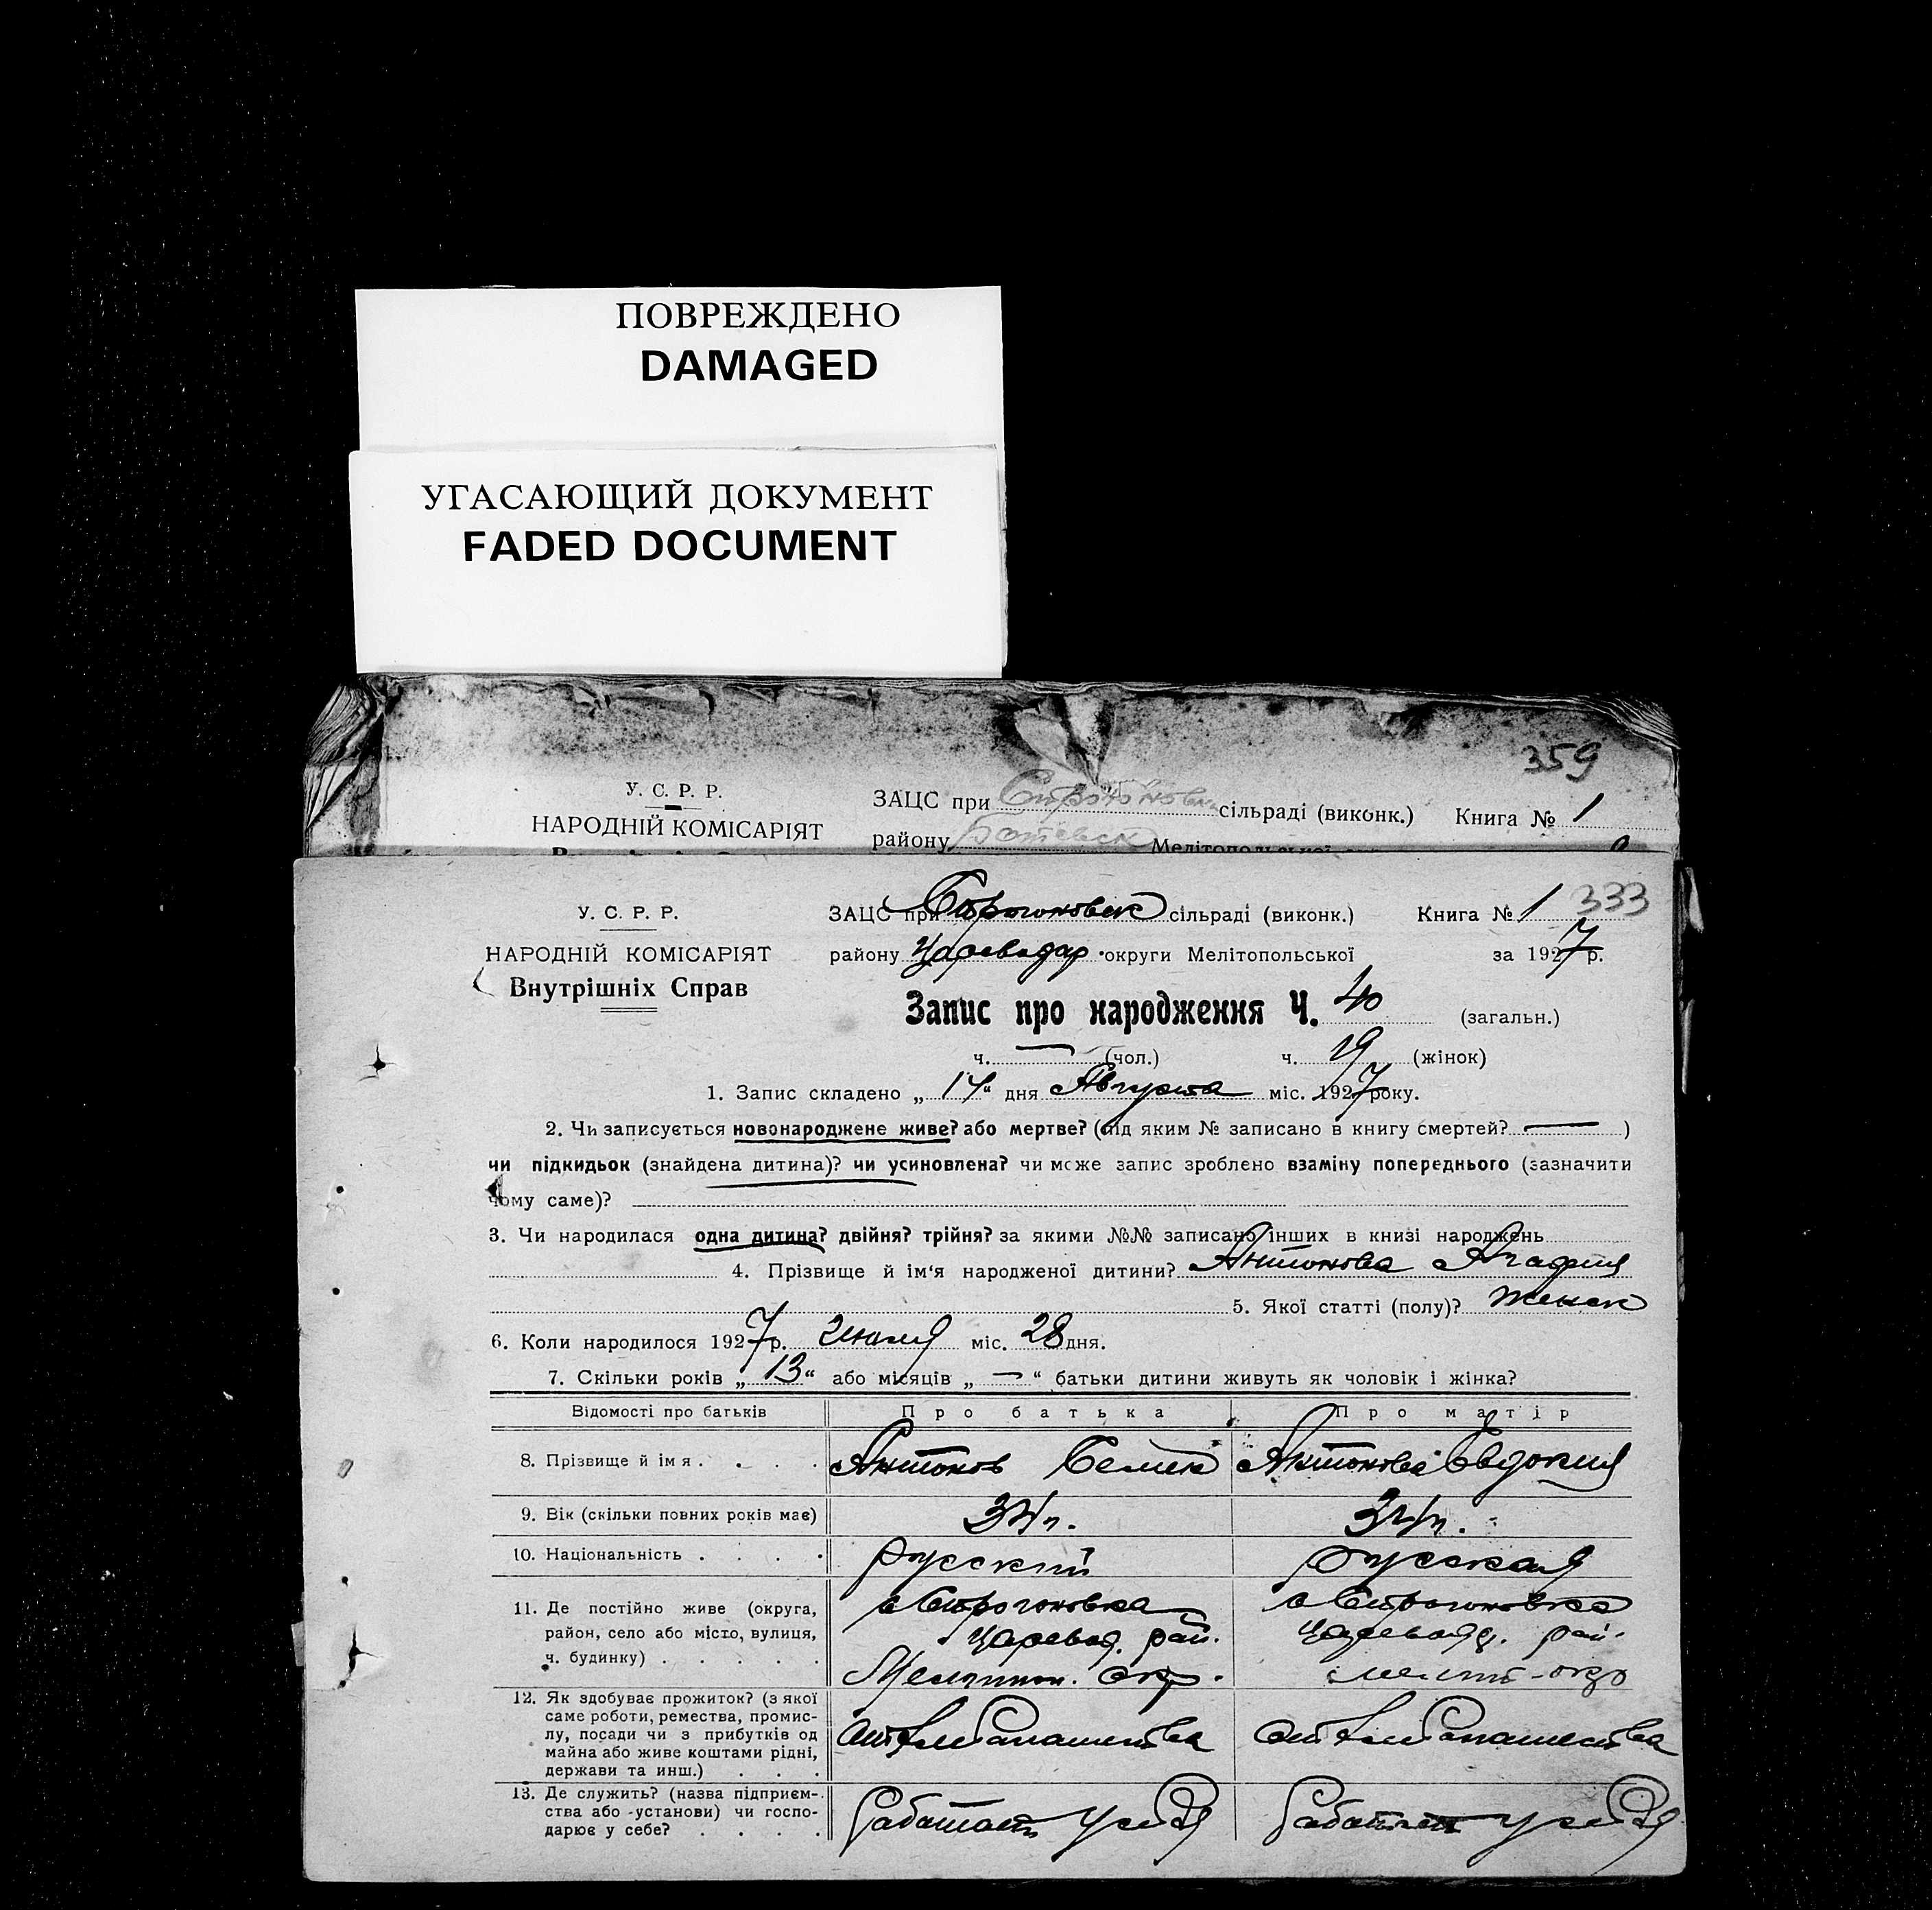 ПОВРЕЖДЕНО
DAMAGED
УГАСАЮЩИЙ ДОКУМЕНТ
FADED DOCUMENT
359
У. С. Р. Р.
НАРОДНІЙ КОМІСАРІЯТ
ЗАЦС при сільраді (виконк.) Книга № 1
району Ботевск Мелітопольської
333
У. С. Р. Р.
НАРОДНІЙ КОМІСАРІЯТ
Внутрішніх Справ
ЗАЦС при Строгоновск сільраді (виконк.) Книга № 1
району Цареводар округи Мелітопольської за 1927 р.
Запис про народження Ч. 40 (загальн.)
ч. — (чол.) ч. 19 (жінок)
1. Запис складено „ 14 “ дня Августа міс. 1927 року.
2. Чи записується новонароджене живе? або мертве? (під яким № записано в книгу смертей? — )
чи підкидьок (знайдена дитина)? чи усиновлена? чи може запис зроблено взаміну попереднього (зазначити
чому саме)?
3. Чи народилася одна дитина? двійня? трійня? за якими №№ записано інших в книзі народжень
4. Прізвище й ім‘я народженої дитини? Антонова Агафия
5. Якої статті (полу)? женск
6. Коли народилося 1927 р. Июля міс. 28 дня.
7. Скільки років „ 13 “ або місяців „ — “ батьки дитини живуть як чоловік і жінка?
Відомості про батьків Про батька Про матір
8. Прізвище й імя . . . . Антонов Семен Антонова Евдокия
9. Вік (скільки повних років має) 34 г. 34 г.
10. Національність . . . . русский русская
11. Де постійно живе (округа, с Строгоновка с Строгоновка
район, село або місто, вулиця, Царевод. рай. Царевод. рай.
ч. будинку) . . . . . Мелитоп. окр. мелит-окр
12. Як здобуває прожиток? (з якої
саме роботи, ремества, промис-
лу, посади чи з прибутків од
майна або живе коштами рідні,
держави та инш.) . . .
от хлебопашества от хлебопашества
13. Де служить? (назва підприєм-
ства або -установи) чи госпо-
дарює у себе? . . . .
Работает у себя Работает у себя